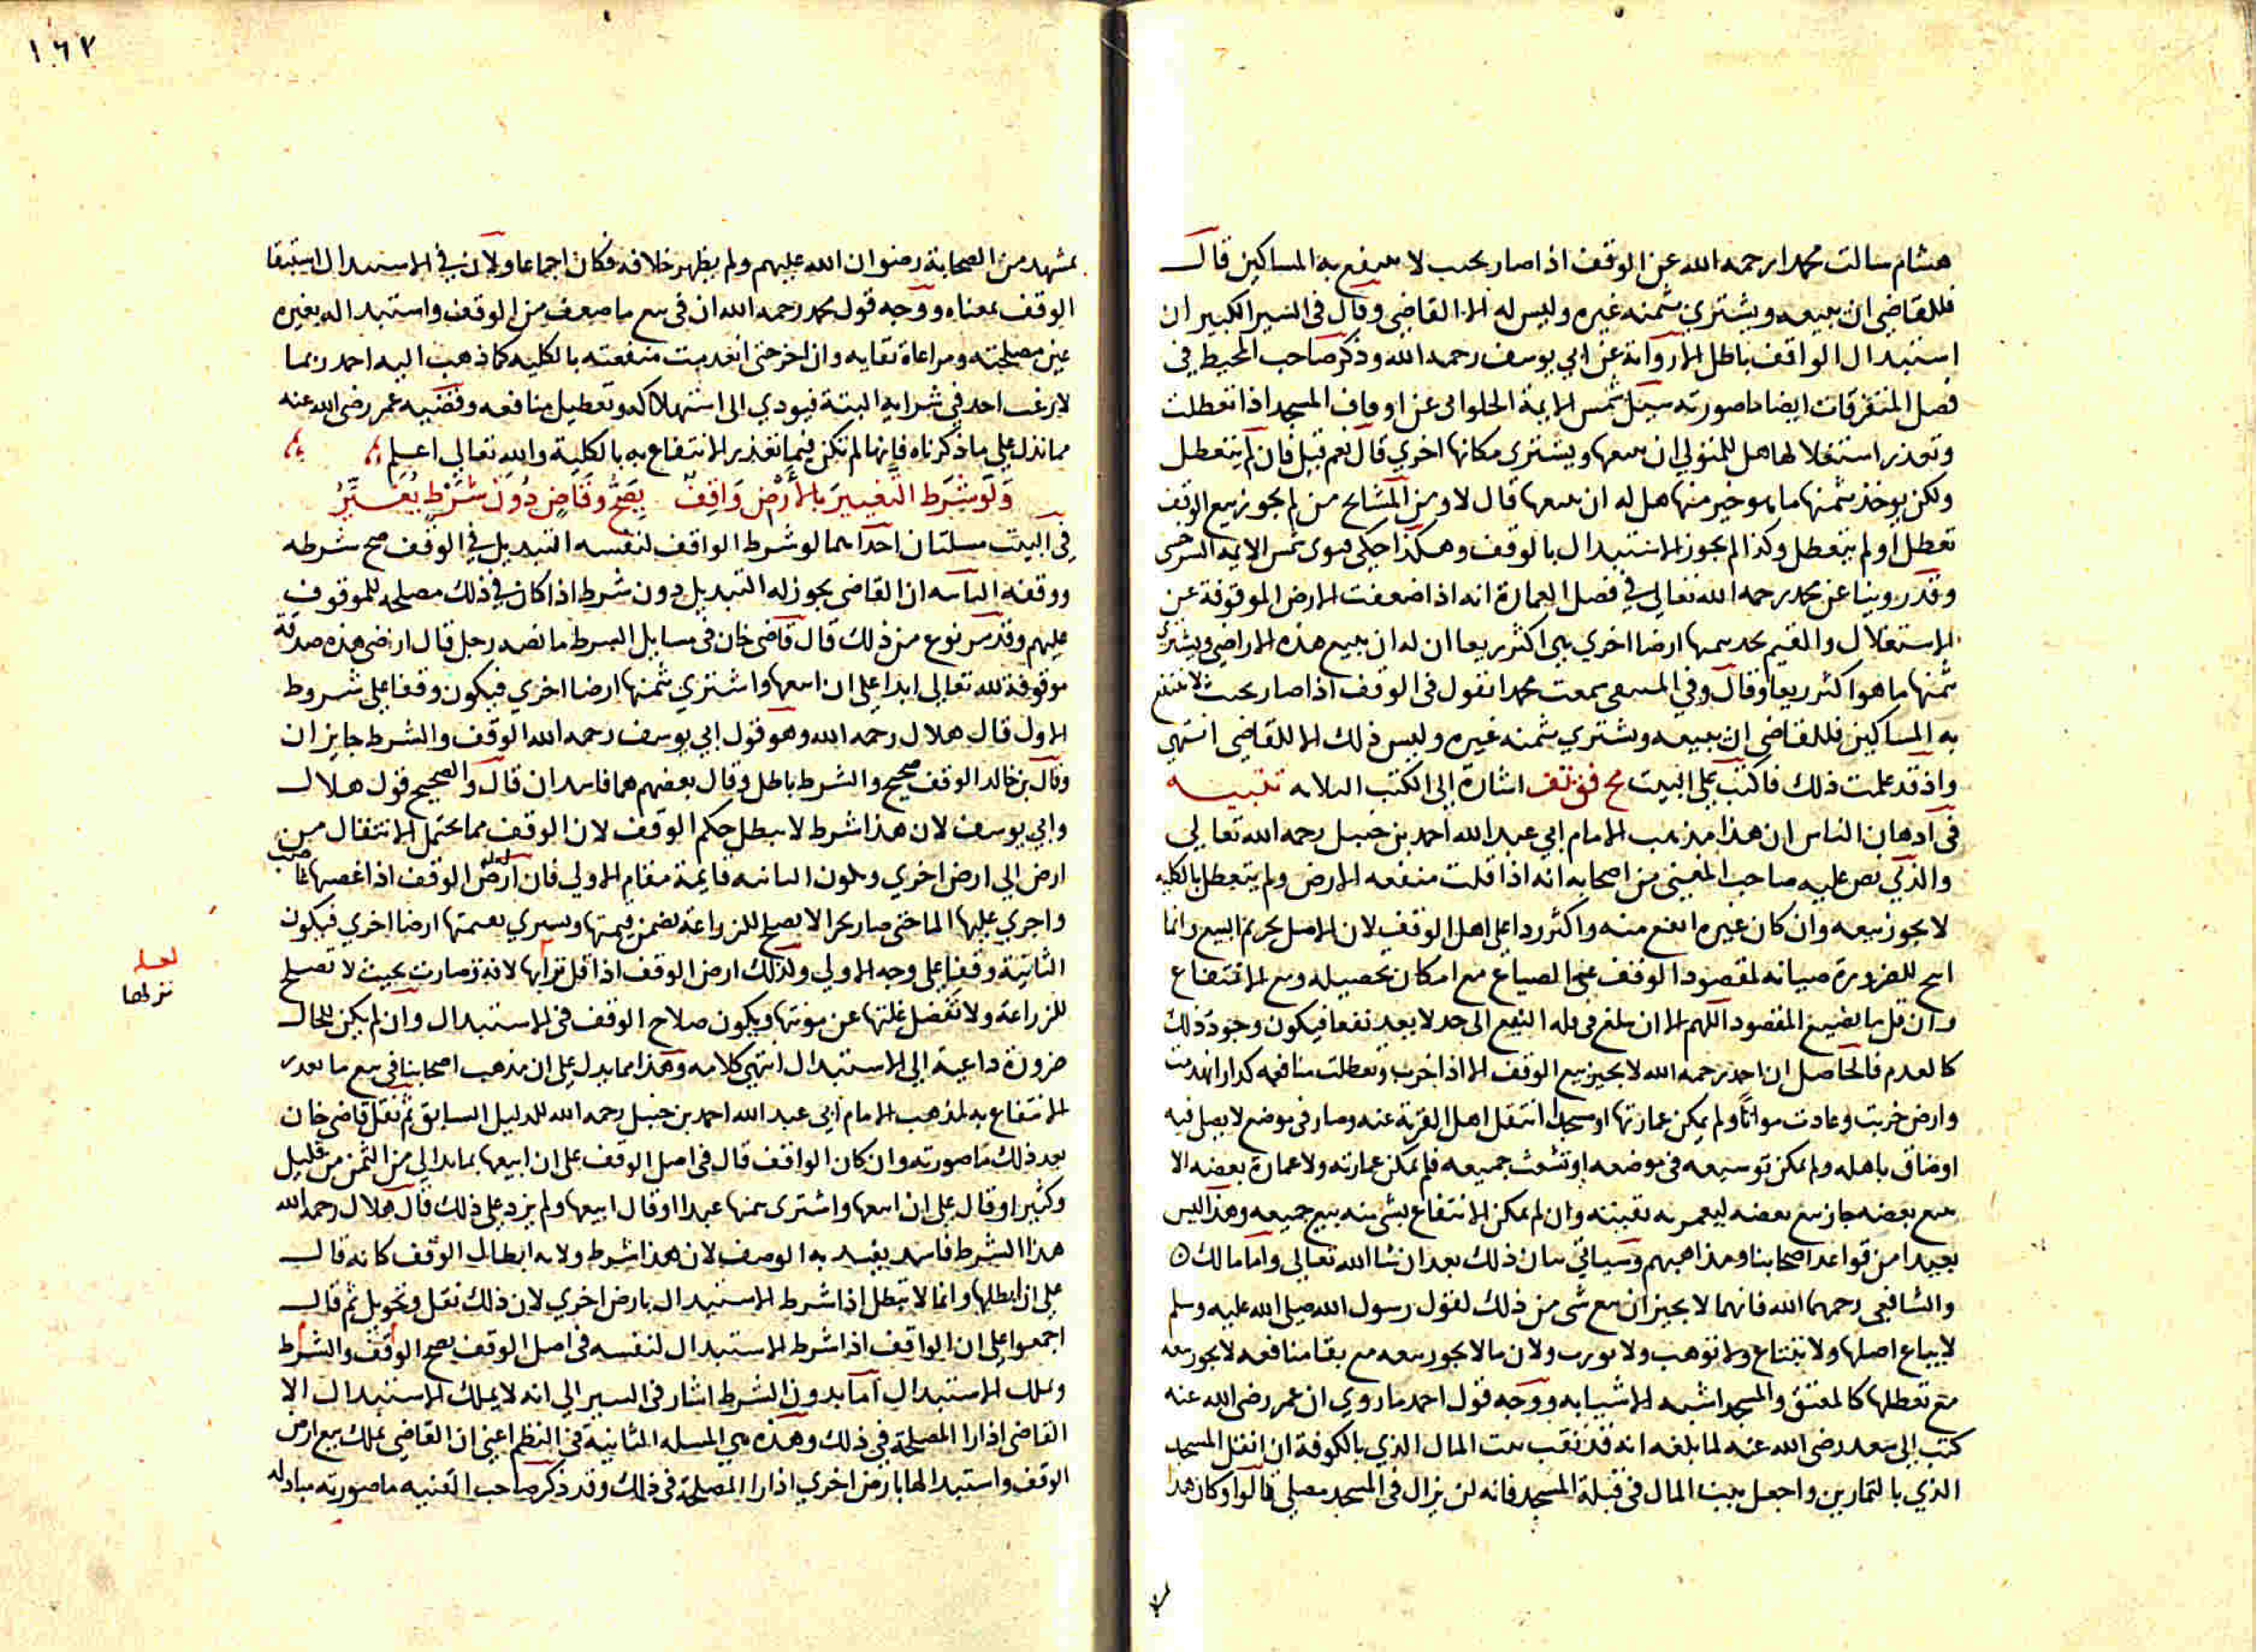 هشام سالت محمدا رحمه الله عن الوقف اذا صار بحيث لا ينتفع به المساكين قال
فللقاضي ان يبيعه ويشتري بثمنه غيره وليس له الا القاضي وقال في السير الكبير ان
استبدال الواقف باطل الا رواية عن ابي يوسف رحمه الله وذكر صاحب المحيط في
فصل المتفرقات ايضا ما صورته سيل شمس الايمة الحلواني عن اوقاف المسجد اذا تعطلت
وتعذر استغلالها هل للمتولي ان يبيعها ويشتري مكانها اخري قال نعم قيل فان لم يتعطل
ولكن يوخذ بثمنها ما هو خير منها هل له ان يبيعها قال لا ومن المشايخ من لم يجوز بيع الوقف
تعطل اولم يتعطل وكذا لم يجوز الاستبدال بالوقف وهكذا حكي فتوى شمس الايمة السرخسي
وقد روينا عن محمد رحمه الله تعالي في فصل العمارة انه اذا ضعفت الارض الموقوفة عن
الاستغلال والقيم يجد بثمنها ارضا اخري هي اكثر ريعا ان له ان يبيع هذه الاراضي ويشتري
بثمنها ما هو اكثر ريعا وقال وفي المنتقى سمعت محمدا يقول في الوقف اذا صار بحيث لا ينتفع
به المساكين فللقاضي ان يبيعه ويشتري بثمنه غيره وليس ذلك الا للقاضي انتهي
واذ قد علمت ذلك فاكتب علي البيت مح فق تف اشارة الي الكتب الثلاثة تنبيه
في اذهان الناس ان هذا مذهب الامام ابي عبد الله احمد بن حنبل رحمه الله تعالي
والذي نص عليه صاحب المغني من اصحابه انه اذا قلت منفعه الارض ولم يتعطل بالكليه
لا يجوز بيعه وان كان غيره انفع منه واكثر ردا علي اهل الوقف لان الاصل تحريم البيع وانما
ابيح للضرورة صيانه لمقصود الوقف عن الضياع مع امكان تحصيله ومع الانتفاع
وان قل ما يضيع المقصود اللهم الا ان يبلغ في قله النفع الى حد لا يعد نفعا فيكون وجود ذلك
كالعدم فالحاصل ان احمد رحمه الله لا يجيز بيع الوقف الا اذا خرب وتعطلت منافعه كدار انهدمت
وارض خربت وعادت مواتا ولم يمكن عمارتها او مسجد انتقل اهل القرية عنه وصار في موضع لا يصلى فيه
اوضاق باهله ولم يمكن توسيعه في موضعه او تشعث جميعه فلم يمكن عمارته ولا عمارة بعضه الا
ببيع بعضه جاز بيع بعضه ليعمر به بقيته وان لم يمكن الانتفاع بشي منه بيع جميعه وهذا ليس
بعيدا من قواعد اصحابنا ومذاهبهم وسياتي بيان ذلك بعد ان شا الله تعالي واما مالك
والشافعي رحمهما الله فانهما لا يجيزان بيع شي من ذلك لقول رسول الله صلي الله عليه وسلم
لا يباع اصلها ولا تبتاع ولا توهب ولا تورث ولان ما لا يجوز بيعه مع بقا منافعه لا يجوز بيعه
مع تعطلها كالمعتق والمسجد اشبه الاشيا به ووجه قول احمد ما روي ان عمر رضي الله عنه
كتب الي سعد رضي الله عنه لما بلغه انه قد نقب بيت المال الذي بالكوفة ان انقل المسجد
الذي بالتمارين واجعل بيت المال في قبلة المسجد فانه لن يزال في المسجد مصلي قالوا وكان هذا
١٦٢
بمشهد من الصحابة رضوان الله عليهم ولم يظهر خلافه فكان اجماعا ولان في الاستبدال استبقا
الوقف بمعناه ووجه قول محمد رحمه الله ان في بيع ما ضعف من الوقف واستبداله بغيره
عين مصلحته ومراعاة بقايه وان اخر حتى انعدمت منفعته بالكليه كما ذهب اليه احمد ربما
لا يرغب احد في شرايه البتة فيودي الى استهلاكه وتعطيل منافعه وقضيه عمر رضي الله عنه
مما تدل علي ما ذكرناه فانها لم تكن فيما تعذر الانتفاع به بالكلية والله تعالي اعلم
وَلَو شَرَط التَّغييرَ بالأَرْض وَاقِفٌ يصَحُّ وقَاضٍ دُونَ شَرْطٍ يُغَيِّرُ
في البيت مسلتان احداهما لو شرط الواقف لنفسه التبديل في الوقف صح شرطه
ووقفه الثانيه ان القاضي يجوز له التبديل دون شرط اذا كان في ذلك مصلحه للموقوف
عليهم وقد مر نوع من ذلك قال قاضي خان في مسايل الشرط ما نصه رجل قال ارضي هذه صدقة
موقوفة لله تعالي ابدا علي ان ابيعها واشتري بثمنها ارضا اخري فيكون وقفا علي شروط
الاول قال هلال رحمه الله وهو قول ابي يوسف رحمه الله الوقف والشرط جايزان
وقال بن خالد الوقف صحيح والشرط باطل وقال بعضهم هما فاسدان قال والصحيح قول هلال
وابي يوسف لان هذا شرط لا يبطل حكم الوقف لان الوقف مما يحتمل الانتقال من
ارض الي ارض اخري ويكون الثانيه قايمة مقام الاولي فان ارض الوقف اذا غصبها غاصب
واجري عليها الما حتى صار بحرا لا يصلح للزراعة يضمن قيمتها ويشتري بقيمتها ارضا اخري فيكون
الثانية وقفا علي وجه الاولي وكذلك ارض الوقف اذا قل نزلها لانه وصارت بحيث لا تصلح
لعله
نزلها
للزراعة ولا تفضل غلتها عن مونتها ويكون صلاح الوقف في الاستبدال وان لم يكن للحال
ضرورة داعية الي الاستبدال انتهي كلامه وهذا مما يدل علي ان مذهب اصحابنا في بيع ما تعذر
الانتفاع به لمذهب الامام ابي عبد الله احمد بن حنبل رحمه الله للدليل السابق ثم نقل قاضي خان
بعد ذلك ما صورته وان كان الواقف قال في اصل الوقف علي ان ابيعها بما بدا لي من الثمن من قليل
وكثير او قال علي ان ابيعها واشتري بثمنها عبدا او قال ابيعها ولم يزد علي ذلك قال هلال رحمه الله
هذا الشرط فاسد يفسد به الوقف لان هذا شرط ولاية ابطال الوقف كانه قال
علي ان ابطلها وانما لا تبطل اذا شرط الاستبدال بارض اخري لان ذلك نقل وتحويل ثم قال
اجمعوا علي ان الواقف اذا شرط الاستبدال لنفسه في اصل الوقف يصح الوقف والشرط
ويملك الاستبدال اما بدون الشرط اشار في السير الي انه لا يملك الاستبدال الا
القاضي اذا را المصلحة في ذلك وهذه هي المسله الثانية في النظم اعني ان القاضي يملك بيع ارض
الوقف واستبدالها بارض اخري اذا را المصلحة في ذلك وقد ذكر صاحب القنيه ما صورته مبادله